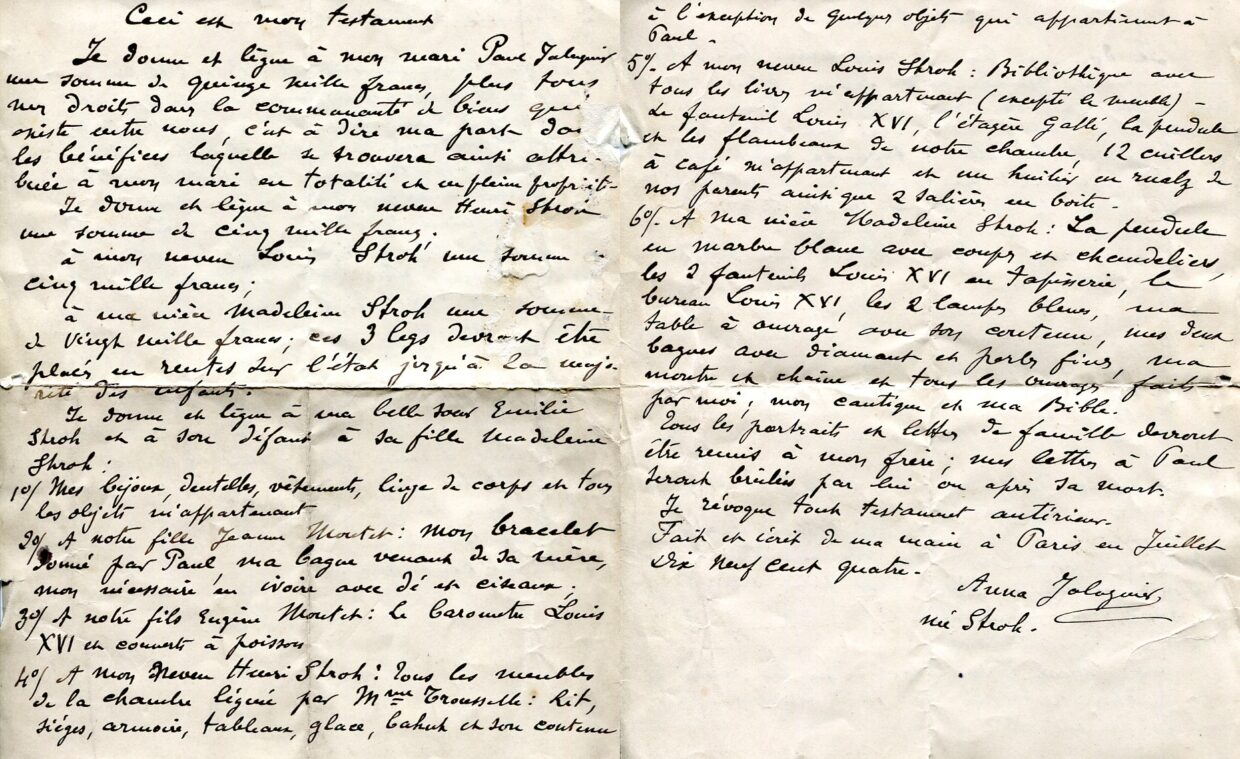 Ceci est mon testament
Je donne et lègue à mon mari Paul Jalaguier
une somme de quinze mille francs, plus tous
mes droits dans la communauté de biens qui
existe entre nous, c'est à dire ma part dans
les bénéfices laquelle se trouvera ainsi attri-
buée à mon mari en totalité et en pleine propriété
Je donne et lègue à mon neveu Henri Stroh
une somme de cinq mille francs.
à mon neveu Louis Stroh une somme
cinq mille francs;
à ma nièce Madeleine Stroh une somme
de vingt mille francs; ces 3 legs devront être
placés en rentes sur l'état jusqu'à la majo-
rité des enfants.
Je donne et lègue à ma belle sœur Emilie
Stroh et à son défaut à sa fille Madeleine
Stroh:
1o/ Mes bijoux, dentelles, vêtements, linge de corps et tous
les objets m'appartenant
2o/ A notre fille Jeanne Moutet: mon bracelet
donné par Paul, ma bague venant de sa mère,
mon nécessaire en ivoire avec dé et ciseaux;
3o/ A notre fils Eugène Moutet: Le barometre Louis
XVI et couverts à poisson
4o/ A mon neveu Henri Stroh: Tous les meubles
de la chambre léguée par Mme Trousselle: Lit,
siéges, armoire, tableaux, glace, bahut et son contenu
à l'exception de quelques objets qui appartiennent à
Paul.
5o/. A mon neveu Louis Stroh: Bibliothèque avec
tous les livres m'appartenant (excepté le meuble) -
Le fauteuil Louis XVI, l'étagère Gallé, la pendule
et les flambeaux de notre chambre, 12 cuillers
à café m'appartenant et un huilier en ruolz de
nos parents ainsi que 2 salières en boite.
6o/. A ma nièce Madeleine Stroh: La pendule
en marbre blanc avec coupes et chandeliers,
les 2 fauteuils Louis XVI en tapisserie, le
bureau Louis XVI, les 2 lampes bleues, ma
table à ouvrage avec son contenu, mes deux
bagues avec diamant et perles fines, ma
montre et chaîne et tous les ouvrages faits
par moi; mon cantique et ma Bible.
Tous les portraits et lettres de famille devront
être remis à mon frère; mes lettres à Paul
seront brûlées par lui ou après sa mort.
Je révoque tout testament antérieur.
Fait et écrit de ma main à Paris en Juillet
Dix neuf cent quatre.
Anna Jalaguier
née Stroh.